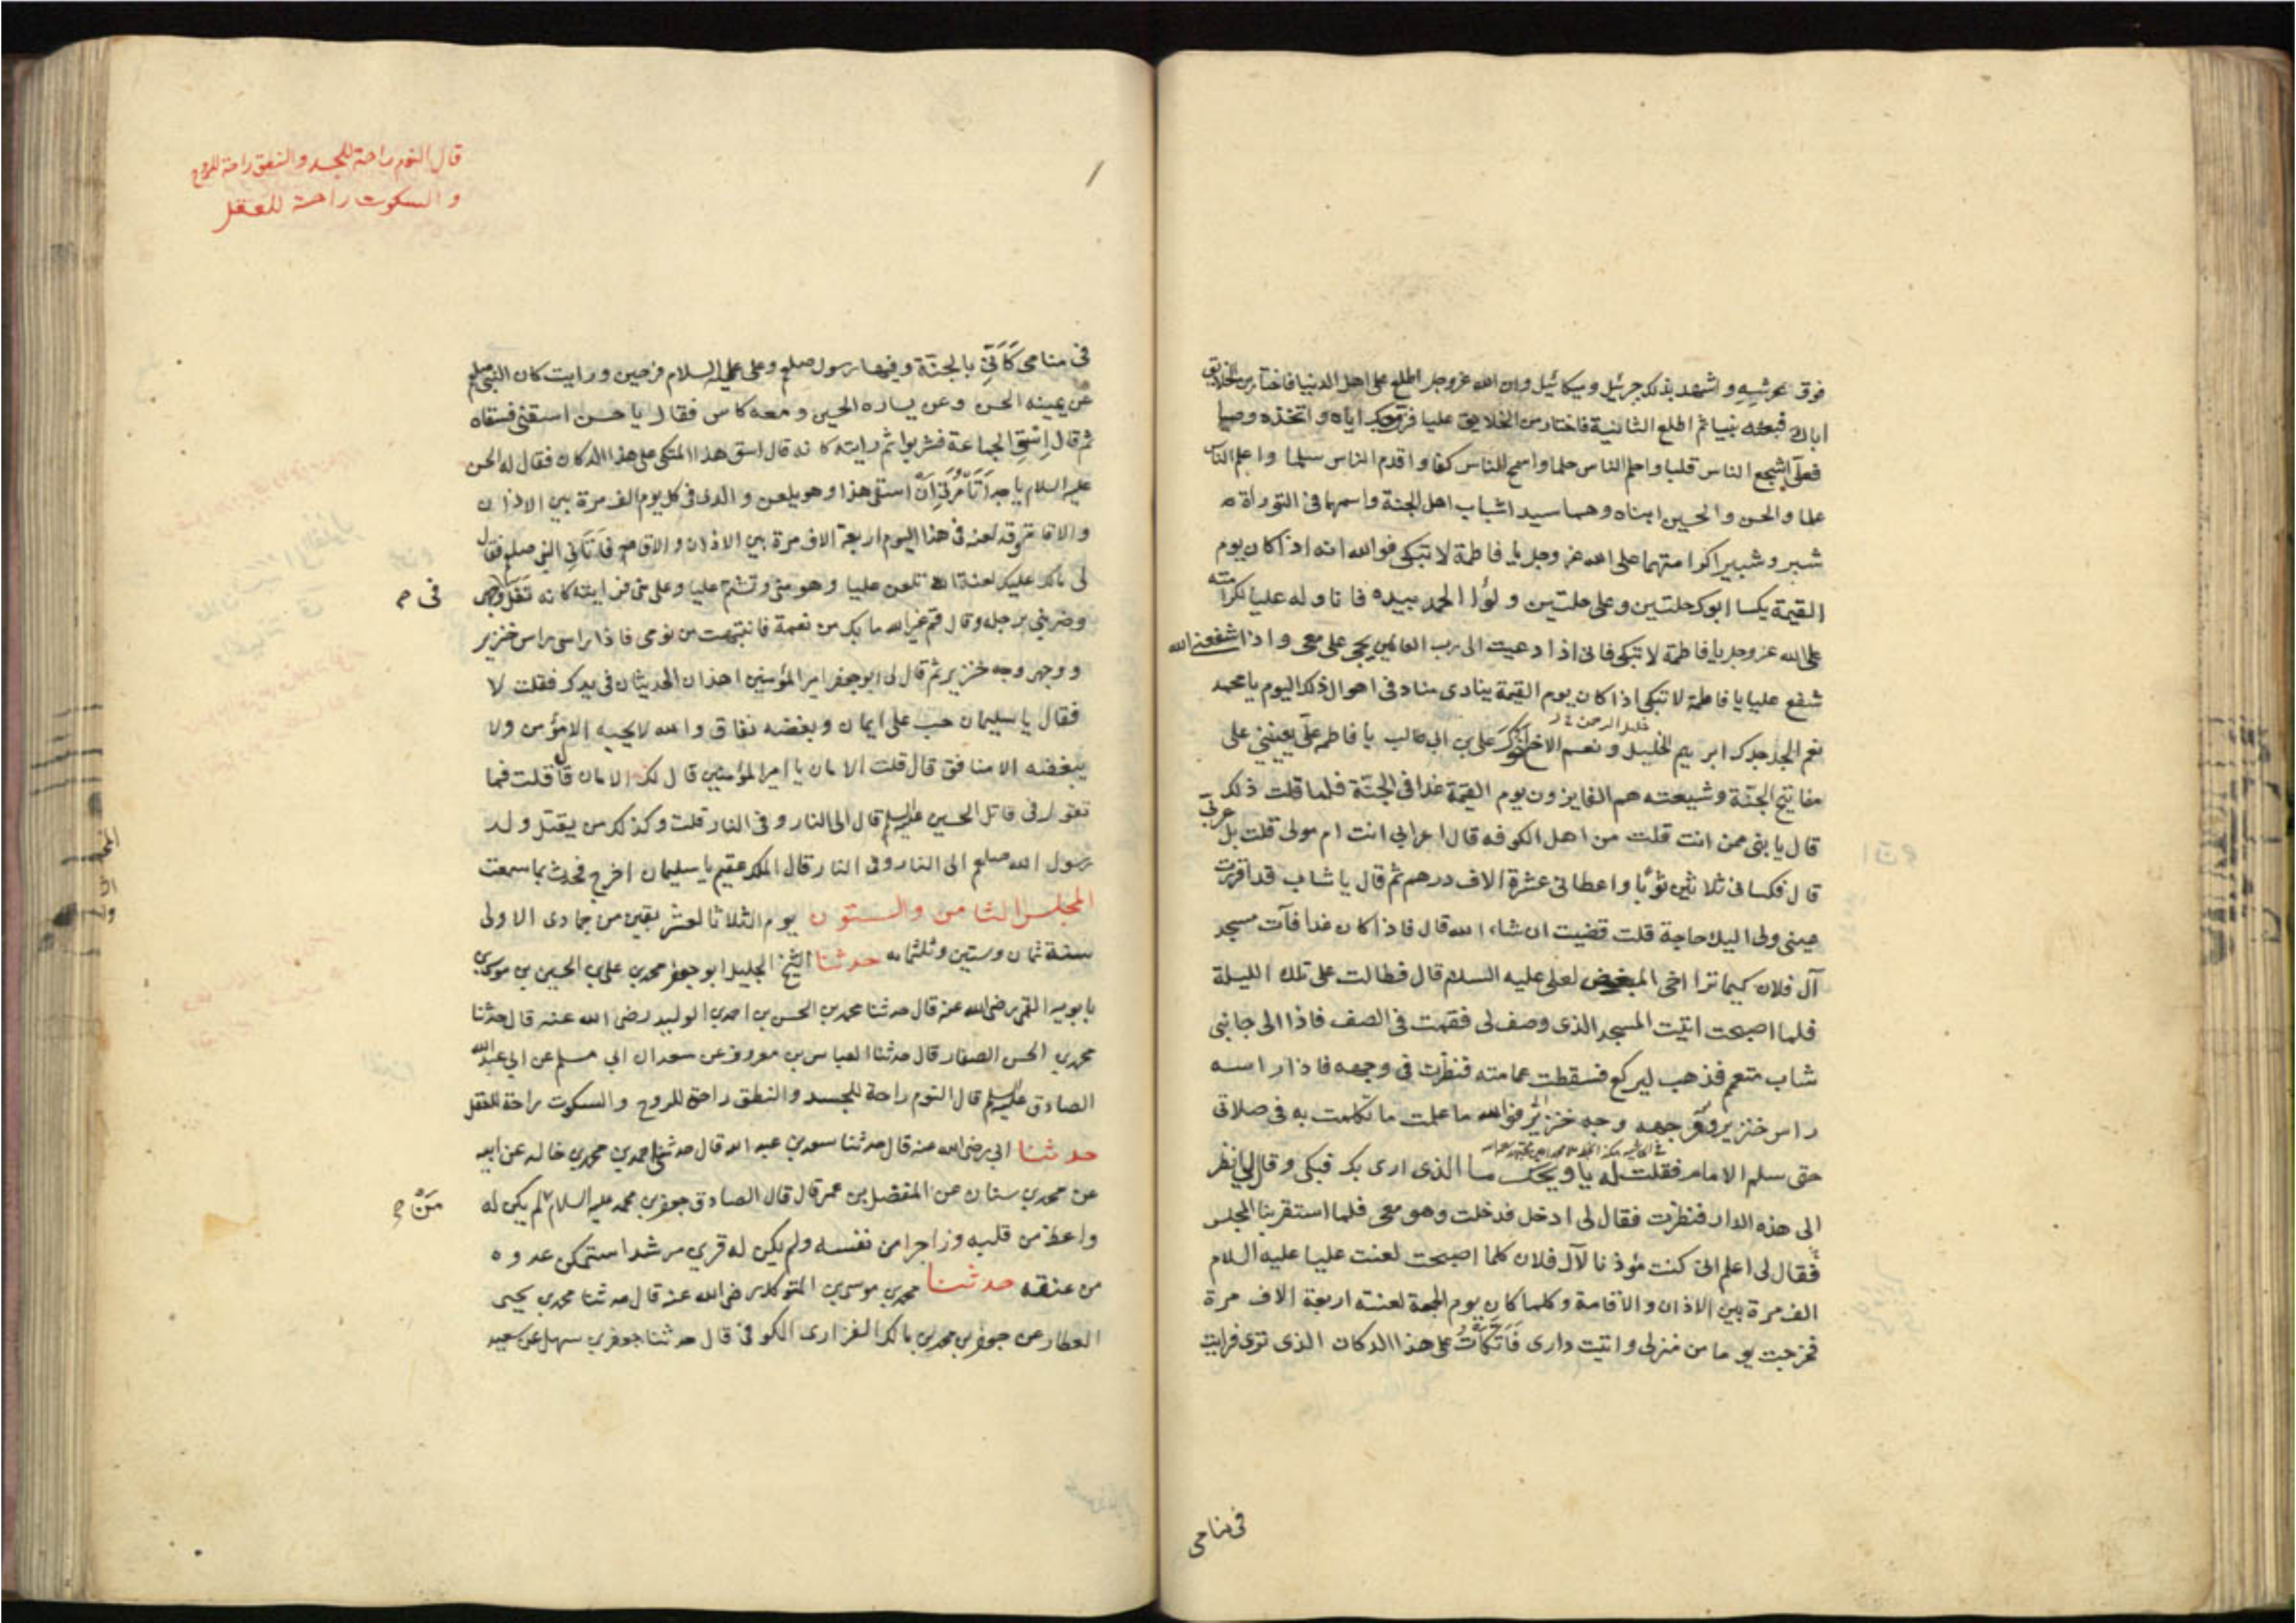 فوق عرشه واشهد بذلك جبرئيل وميكائيل وان الله عزوجل اطلع على اهل الدنيا فاختار من الخلايق
اباك فبعثه نبيا ثم اطلع الثانية فاختار من الخلايق عليا فزوجك اياه واتخذه وصيا
فعلى اشجع الناس قلبا واحلم الناس حلما واسمح الناس كفا واقدم الناس سلما واعلم الناس
علما والحسن والحسين ابناه وهما سيدا شباب اهل الجنة واسمهما فى التوراة
شبر وشبير لكرامتهما على الله عز وجل يا فاطمة لا تبكى فوالله انه اذا كان يوم
القيمة يكسا ابوك حلتين وعلى حلتين ولوا الحمد بيده فاناوله عليا لكرامته
على الله عز وجل يا فاطمة لا تبكى فانى اذا دعيت الى رب العالمين يجى على معى واذا شفعنى الله
شفع عليا يا فاطمة لا تبكى اذا كان يوم القيمة ينادى مناد فى اهوال ذلك اليوم يا محمد
خليل الرحمن
نعم الجد جدك ابرهيم الخليل ونعم الاخ اخوك على بن ابى طالب يا فاطمة على يعيننى على
مفاتيح الجنة وشيعته هم الفايزون يوم القيمة غدا فى الجنة فلما قلت ذلك
قال يا بنى ممن انت قلت من اهل الكوفه قال اعرابى انت ام مولى قلت بل عربى
قال فكسانى ثلاثين ثوبا واعطانى عشرة الاف درهم ثم قال يا شاب قد اقررت
عينى ولى اليك حاجة قلت قضيت ان شاء الله قال فاذا كان غدا فآت مسجد
آل فلان كيما ترا اخى المبغض لعلى عليه السلام قال فطالت على تلك الليلة
فلما اصبحت اتيت المسجد الذى وصف لى فقمت فى الصف فاذا الى جانبى
شاب متعمم فذهب ليركع فسقطت عمامته فنظرت فى وجهه فاذا راسه
راس خنزير ووجهه وجه خنزير فوالله ما علمت ما تكلمت به فى صلاتى
حتى سلم الامام فقلت له يا ويحك ما الذى ارى بك فبكى وقال لى انظر
الى هذه الدار فنظرت فقال لى ادخل فدخلت وهو معى فلما استقر بنا المجلس
فقال لى اعلم انى كنت مؤذنا لآل فلان كلما اصبحت لعنت عليا عليه السلام
الف مرة بين الاذان والاقامة وكلما كان يوم الجمعة لعنته اربعة الاف مرة
فخرجت يوما من منزلى واتيت دارى فاتكات على هذا الدكان الذى ترى فرايت
فى منامى
قال النوم راحة للجسد والنطق راحة للروح
والسكوت راحة للعقل
فى منامى كَاَنّى بالجنّة وفيها رسول صلعم وعلى عليه السلام فرحين ورايت كان النبى صلعم
عن يمينه الحسن وعن يساره الحسين ومعه كاس فقال يا حسن اسقنى فسقاه
ثم قال اسق الجماعة فشربوا ثم رايته كانه قال اسق هذا المتكى على هذا الدكان فقال له الحسن
عليه السلام يا جد اتامرنى ان اسقى هذا وهو يلعن والدى فى كل يوم الف مرة بين الاذان
والاقامة وقد لعنه فى هذا اليوم اربعة الاف مرة بين الاذان والاقامه فاتانى النبى صلعم فقال
لى مالك عليك لعنة الله تلعن عليا وهو منى وتشتم عليا وعلى منى فرايته كانه تفل وجهى
فى
وضربنى برجله وقال قم غير الله ما بك من نعمة فانتبهت من نومى فاذا راسى راس خنزير
ووجهى وجه خنزير ثم قال لى ابو جعفر امير المؤمنين اهذان الحديثان فى يدك فقلت لا
فقال يا سليمان حب على ايمان وبغضه نفاق والله لا يحبه الا مؤمن ولا
يبغضه الا منافق قال قلت الامان يا امير المؤمنين قال لك الامان قال قلت فما
تقول فى قاتل الحسين عليه السلم قال الى النار وفى النار قلت وكذلك من يقتل ولد
رسول الله صلعم الى النار وفى النار قال الملك عقيم يا سليمان اخرج فحدث بما سمعت
المجلس الثامن والستون يوم الثلاثا لعشر بقين من جمادى الاولى
سنة ثمان وستين وثلثمائه حدثنا الشيخ الجليل ابو جعفر محمد بن على بن الحسين بن موسى بن
بابويه القمى رضى الله عنه قال حدثنا محمد بن الحسن بن احمد بن الوليد رضى الله عنه قال حدثنا
محمد بن الحسن الصفار قال حدثنا العباس بن معروف عن سعدان ابى مسلم عن ابى عبد الله
الصادق عليه السلم قال النوم راحة للجسد والنطق راحة للروح والسكوت راحة للعقل
حدثنا ابى رضى الله عنه قال حدثنا سعد بن عبد الله قال حدثنى احمد بن محمد بن خالد عن ابيه
عن محمد بن سنان عن المفضل بن عمر قال قال الصادق جعفر بن محمد عليه السلام لم يكن له
مَنْ
واعظ من قلبه وزاجرا من نفسه ولم يكن له قرين مرشد استمكن عدوه
من عنقه حدثنا محمد بن موسى بن المتوكل رضى الله عنه قال حدثنا محمد بن يحيى
العطار عن جعفر بن محمد بن مالك الفزارى الكوفى قال حدثنا جعفر بن سهل عن سعيد